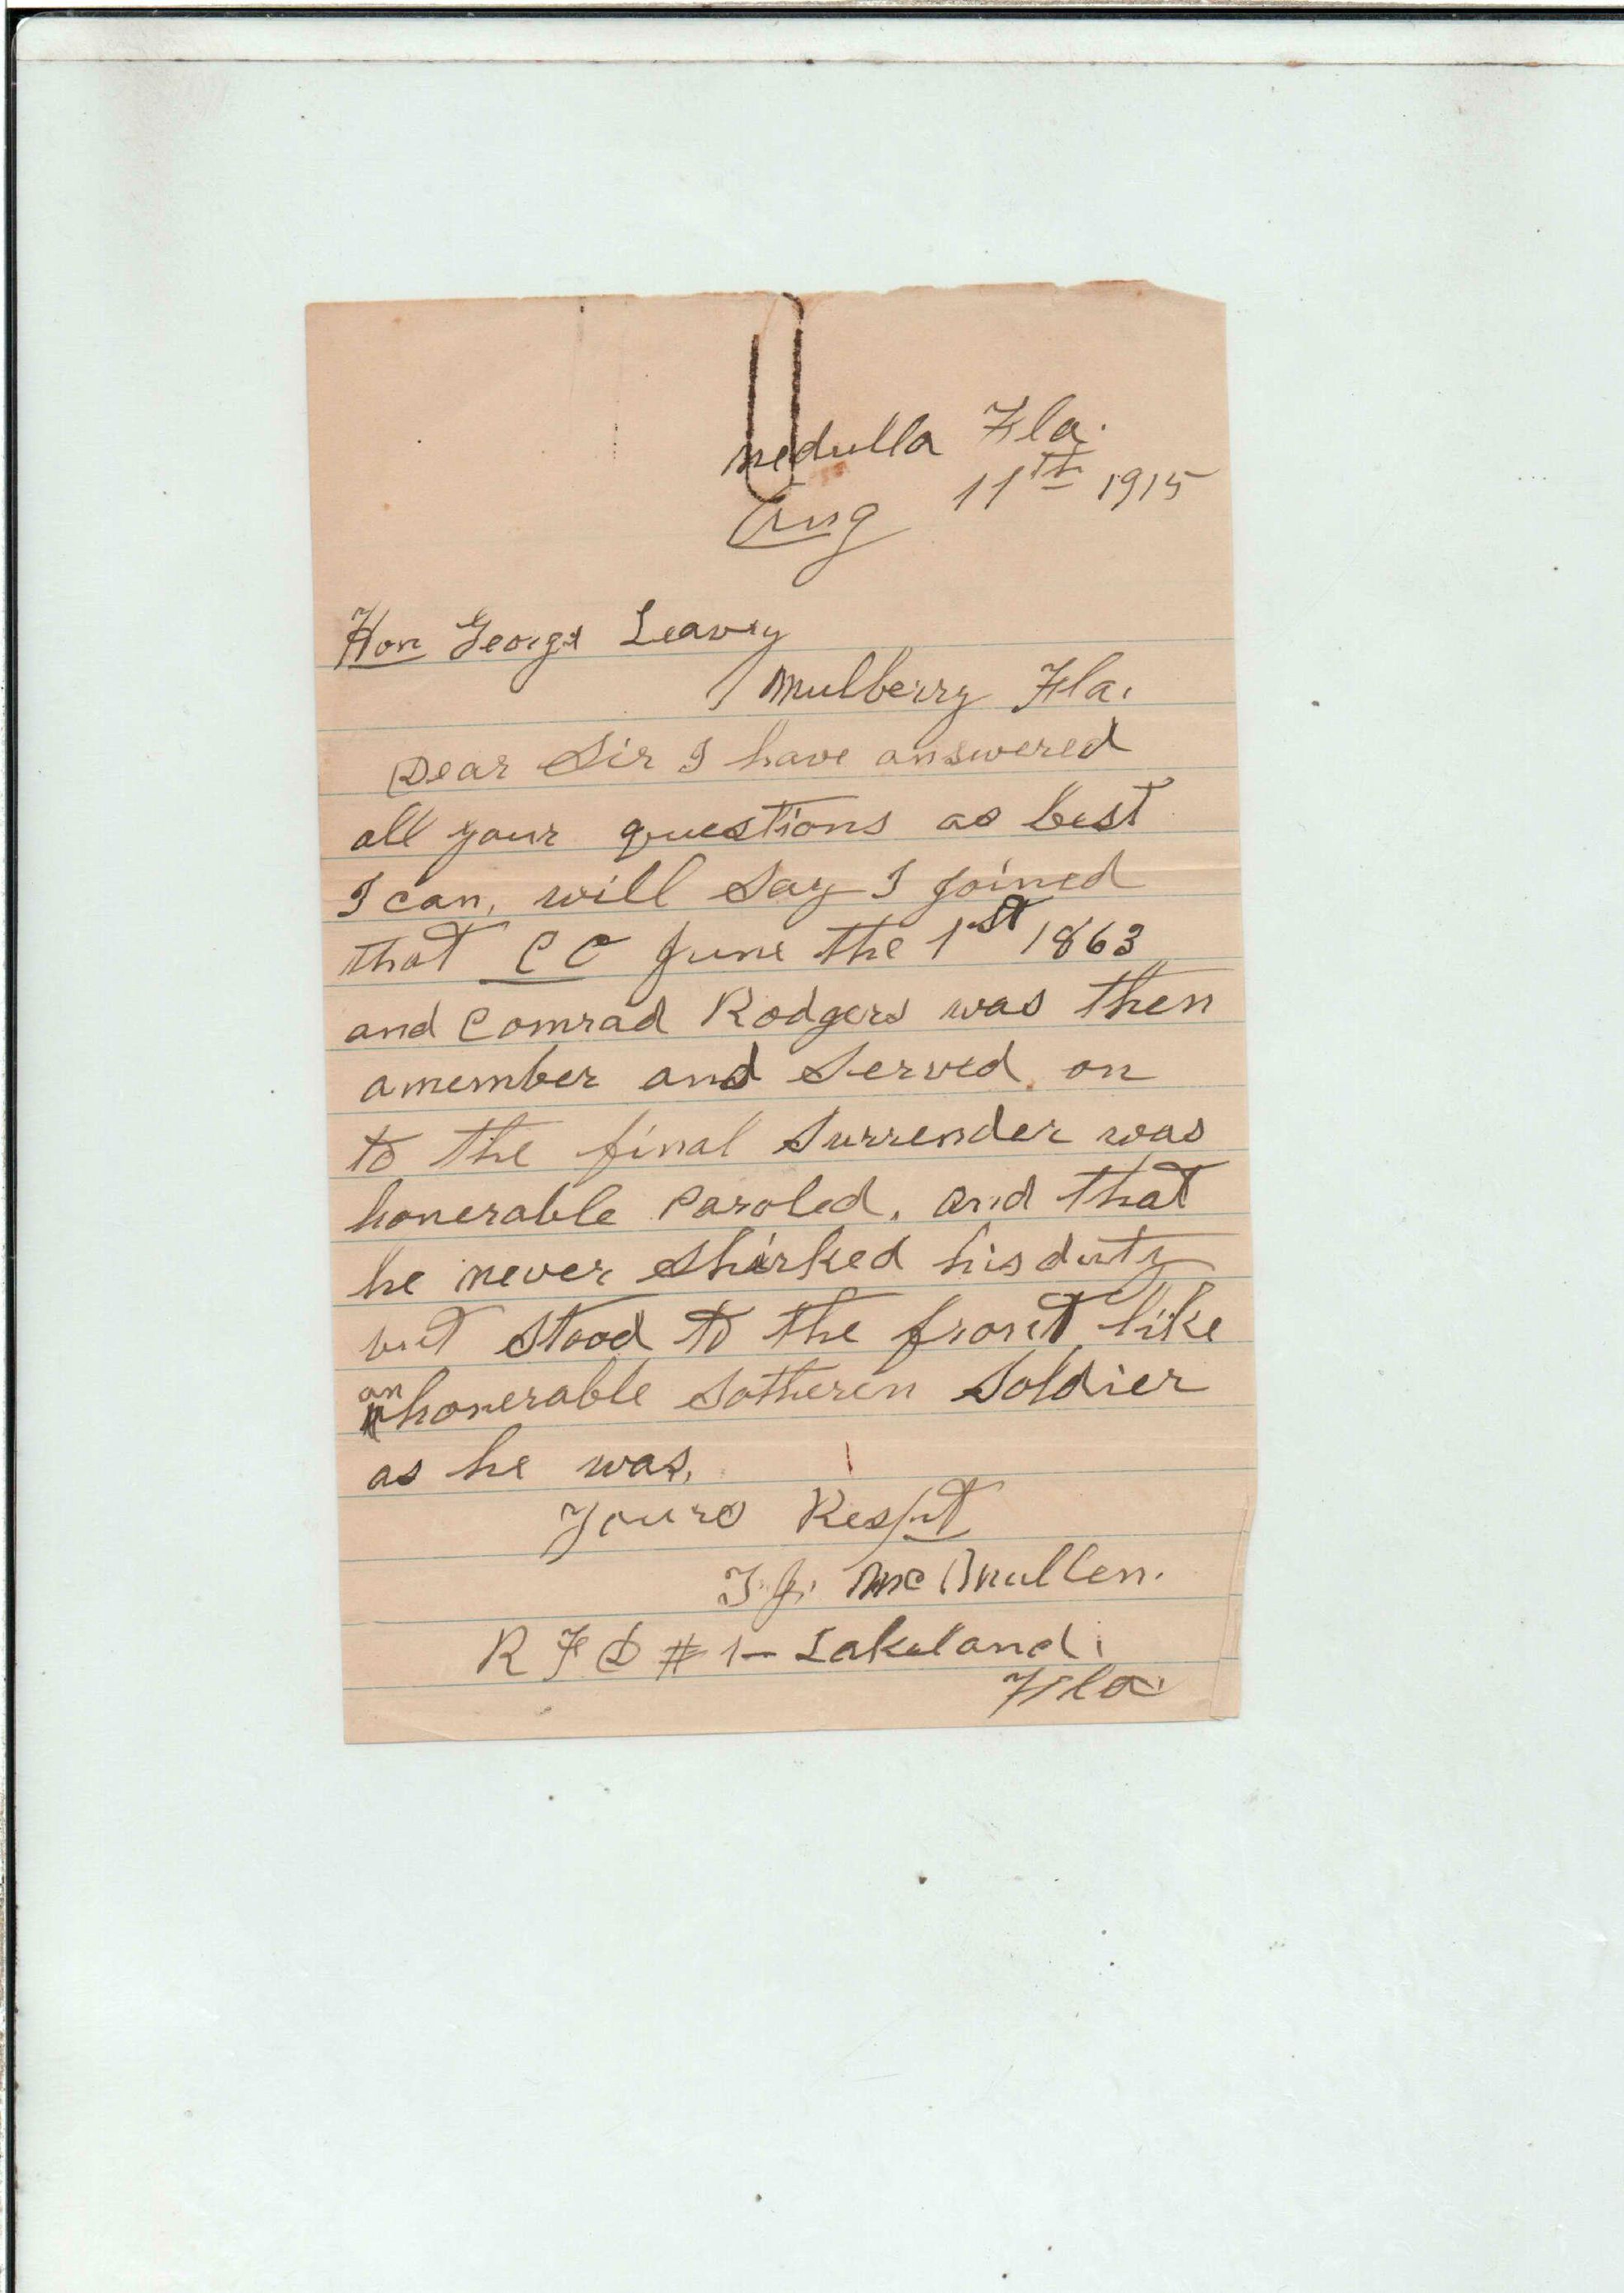 Medulla Fla.
Aug 11th 1915
Hon George Leavy
Mulberry Fla.
Dear Sir I have answered
all your questions as best
I can, will say I joined
that CC June the 1st 1863
and Comrad Rodgers was then
amember and served on
to the final surrender was
honerable Paroled. and that
he never shirked his duty
but stood to the front like
an honerable Sotheren Soldier
as he was.
Yours Respt
T. J. McMullen.
R F D # 1 - Lakeland.
Fla.